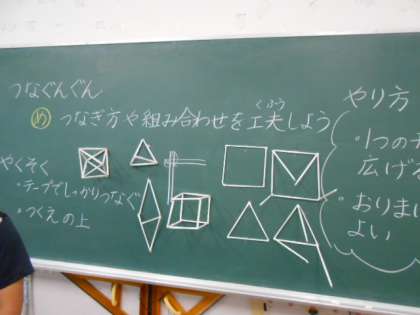 つなぐんぐん
め つなぎ方や組み合わせを工夫しよう
くふう
やくそく
・テープでしっかりつなぐ
・つくえの上
やり方
・1つの
広げ
・おりま
よい